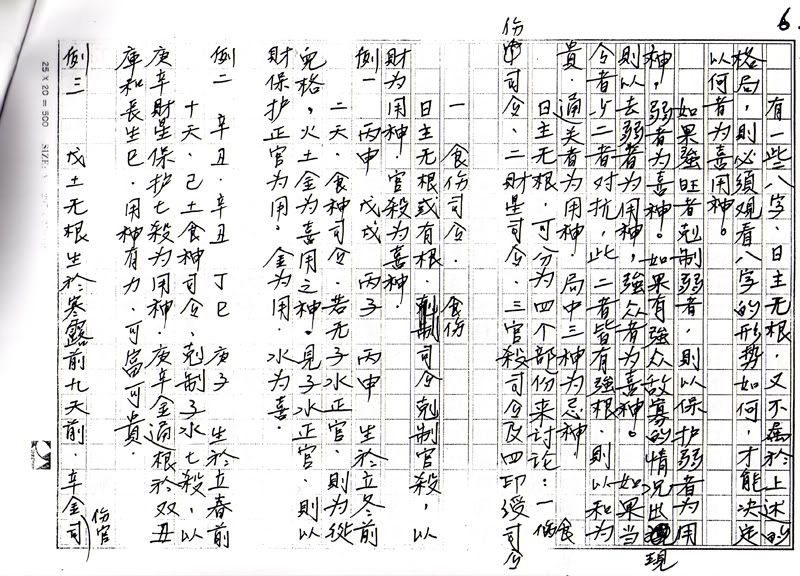 6.
有一些八字，日主无根，又不属於上述的
格局，则必须观看八字的形势如何，才能决定
以何者为喜用神。
如果强旺者剋制弱者，则以保护弱者为用
神，弱者为喜神。如果有强众敌寡的情况出现
则以去弱者为用神，强众者为喜神。如果当
令者与二者对抗，此二者皆有强根，则以和为
贵．通关者为用神．局中三神为忌神．
日主无根，可分为四个部份来讨论：一食
伤司令．二财星司令．三官殺司令及四印绶司令
一 食伤司令．
日主无根或有根．食伤司令剋制官殺，以
财为用神．官殺为喜神．
例一 丙申 戊戌 丙子 丙申 生於立冬前
二天．食神司令．若无子水正官．则为從
児格，火土金为喜用之神。見子水正官．则以
财保护正官为用。金为用．水为喜．
例二 辛丑．辛丑 丁巳 庚子 生於立春前
十天．己土食神司令．剋制子水七殺，以
庚辛财星保护七殺为用神．庚辛金通根於双丑
庫和長生巳．用神有力．可富可貴．
例三 戊土无根生於寒露前九天前．辛金伤官司
25 X 20 = 500